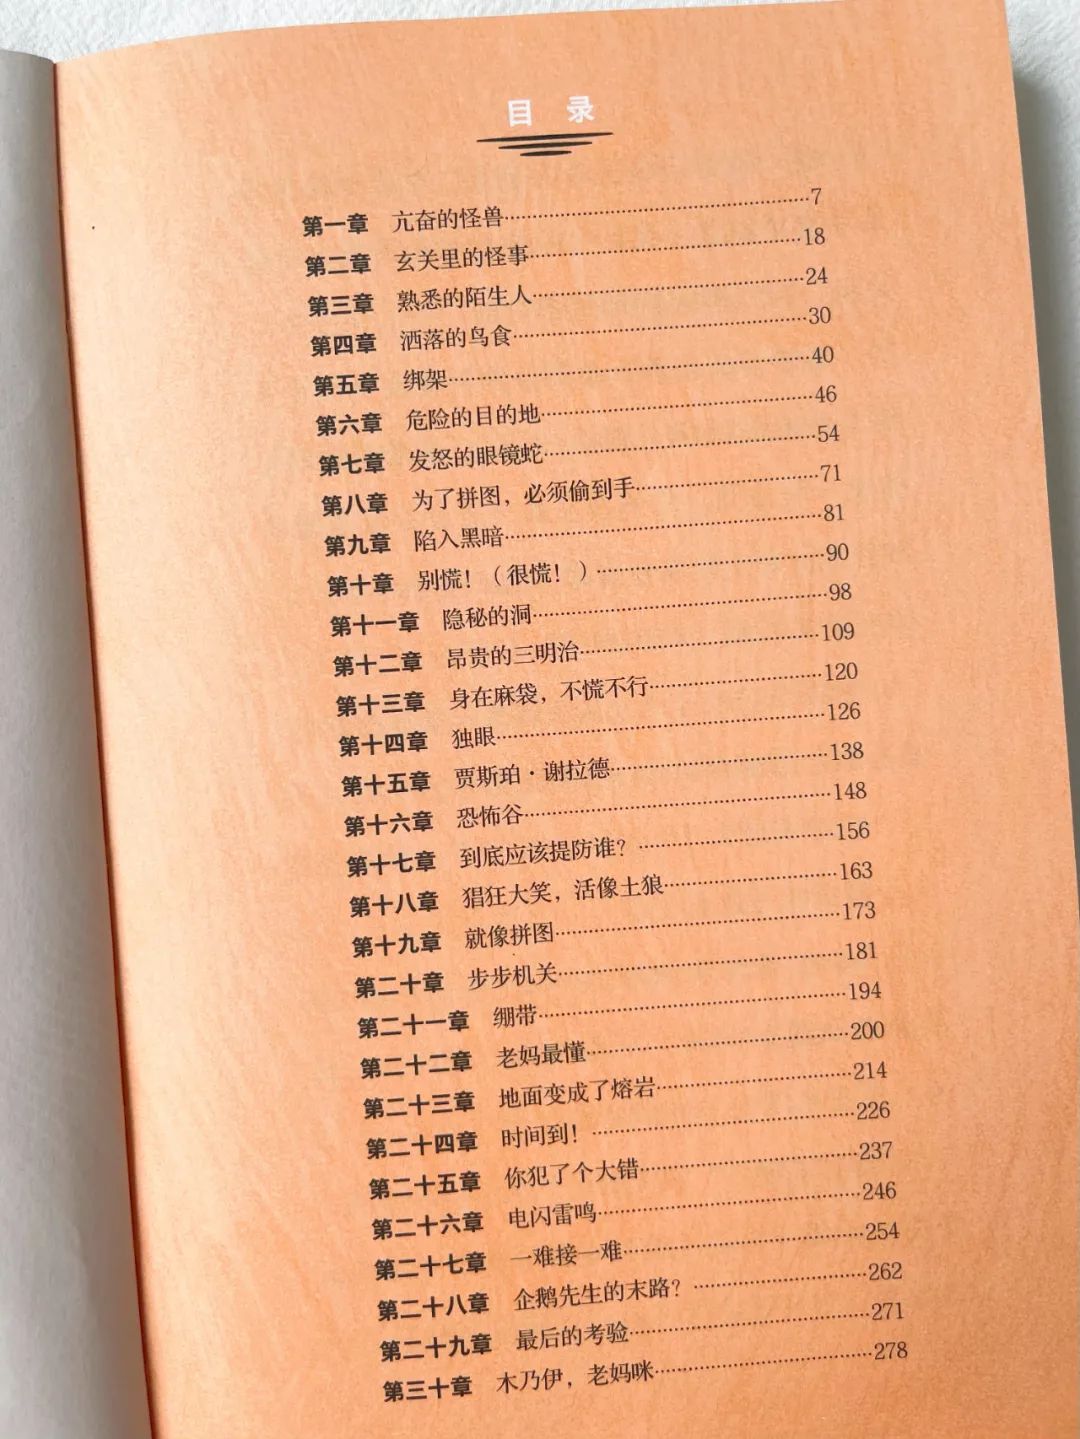 目 录
第一章 亢奋的怪兽……7
第二章 玄关里的怪事……18
第三章 熟悉的陌生人……24
第四章 洒落的鸟食……30
第五章 绑架……40
第六章 危险的目的地……46
第七章 发怒的眼镜蛇……54
第八章 为了拼图，必须偷到手……71
第九章 陷入黑暗……81
第十章 别慌！（很慌！）……90
第十一章 隐秘的洞……98
第十二章 昂贵的三明治……109
第十三章 身在麻袋，不慌不行……120
第十四章 独眼……126
第十五章 贾斯珀·谢拉德……138
第十六章 恐怖谷……148
第十七章 到底应该提防谁？……156
第十八章 猖狂大笑，活像土狼……163
第十九章 就像拼图……173
第二十章 步步机关……181
第二十一章 绷带……194
第二十二章 老妈最懂……200
第二十三章 地面变成了熔岩……214
第二十四章 时间到！……226
第二十五章 你犯了个大错……237
第二十六章 电闪雷鸣……246
第二十七章 一难接一难……254
第二十八章 企鹅先生的末路？……262
第二十九章 最后的考验……271
第三十章 木乃伊，老妈咪……278